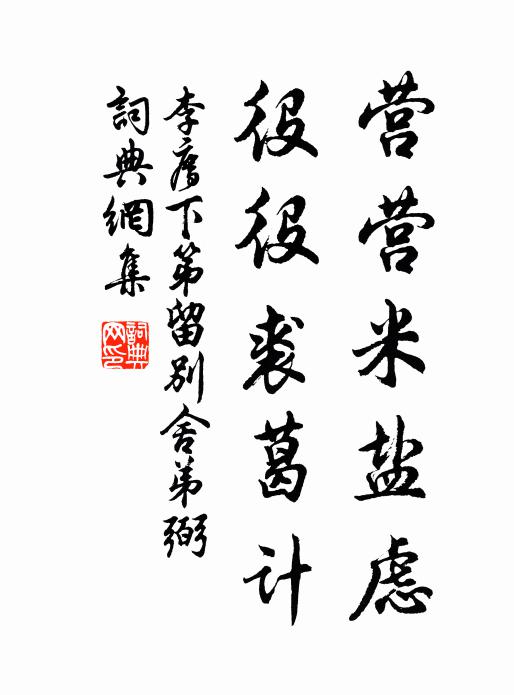 营营米盐虑
役役裘葛计
李廌下第留别舍弟弼
詞典網集
詞典网印